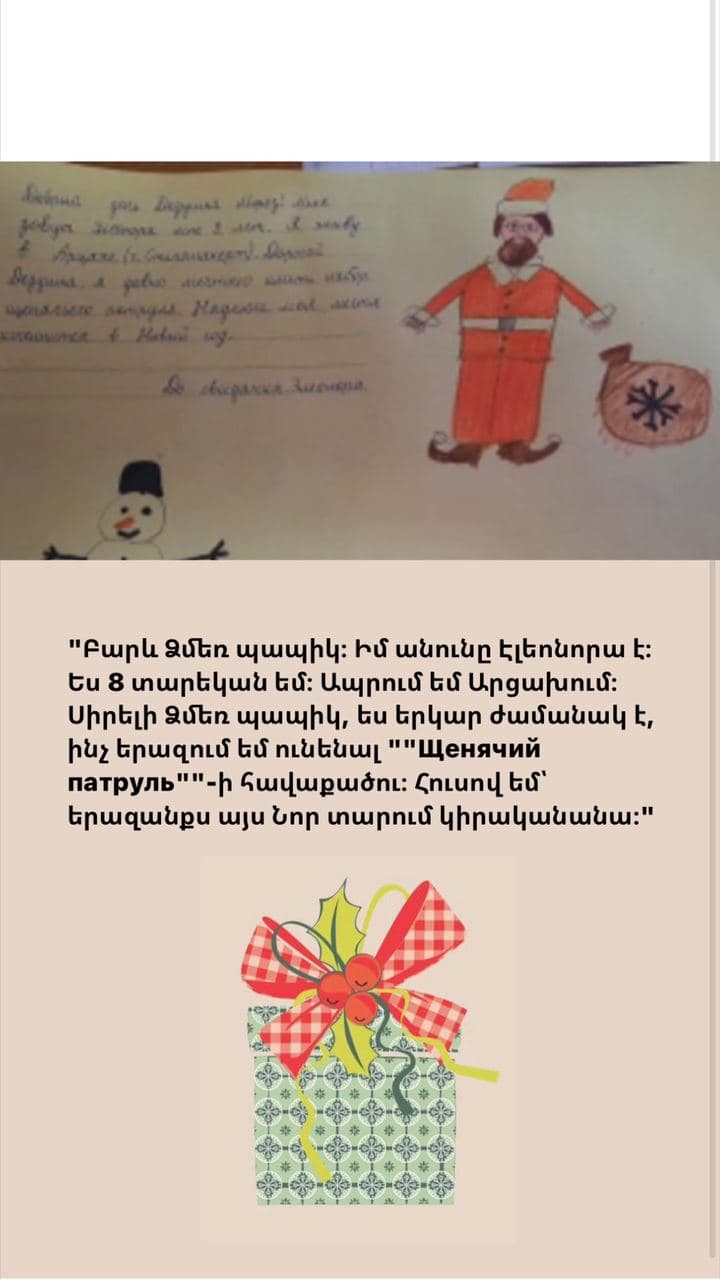 Добрый день Дедушка Мороз! Меня
зовут Элеонора мне 8 лет. Я живу
в Арцахе (г. Степанакерт). Дорогой
Дедушка, я давно мечтаю иметь набор
щенячьего патруля. Надеюсь моя мечта
в Новый год.
До свидания Элеонора.
"Բարև Ձմեռ պապիկ: Իմ անունը Էլեոնորա է:
Ես 8 տարեկան եմ: Ապրում եմ Արցախում:
Սիրելի Ձմեռ պապիկ, ես երկար ժամանակ է,
ինչ երազում եմ ունենալ ""Щенячий
патруль""-ի հավաքածու: Հուսով եմ՝
երազանքս այս Նոր տարում կիրականանա:"